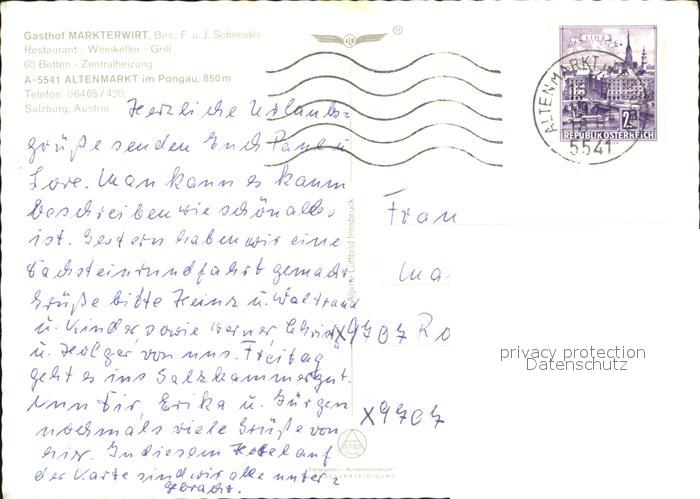 Gasthof MARKTERWIRT, Bes.: F. u. J. Schneider
Restaurant - Weinkeller - Grill
60 Betten - Zentralheizung
A-5541 ALTENMARKT im Pongau, 850 m
Telefon: 06465/420,
Salzburg, Austria
Herzliche Urlaubs-
grüße senden Euch Paul u.
Lore. Man kann es kaum
beschreiben wie schön alles
ist. Gestern haben wir eine
Dachsteinrundfahrt gemacht
Grüße bitte Heinz u. Waltraud
u. Kinder, sowie Werner, Christa
u. Holger, von uns. Freitag
geht es ins Salzkammergut.
Nun Dir, Erika u. Jürgen
nochmals viele Grüße von
hier. In diesem Hotel auf
der Karte sind wir alle unter-
gebracht.
Alpine Luftbild Innsbruck
LINZ
2.50
REPUBLIK ÖSTERREICH
ALTENMARKT
5541
Frau
Ma
X9707 Ro
X9707
privacy protection
Datenschutz